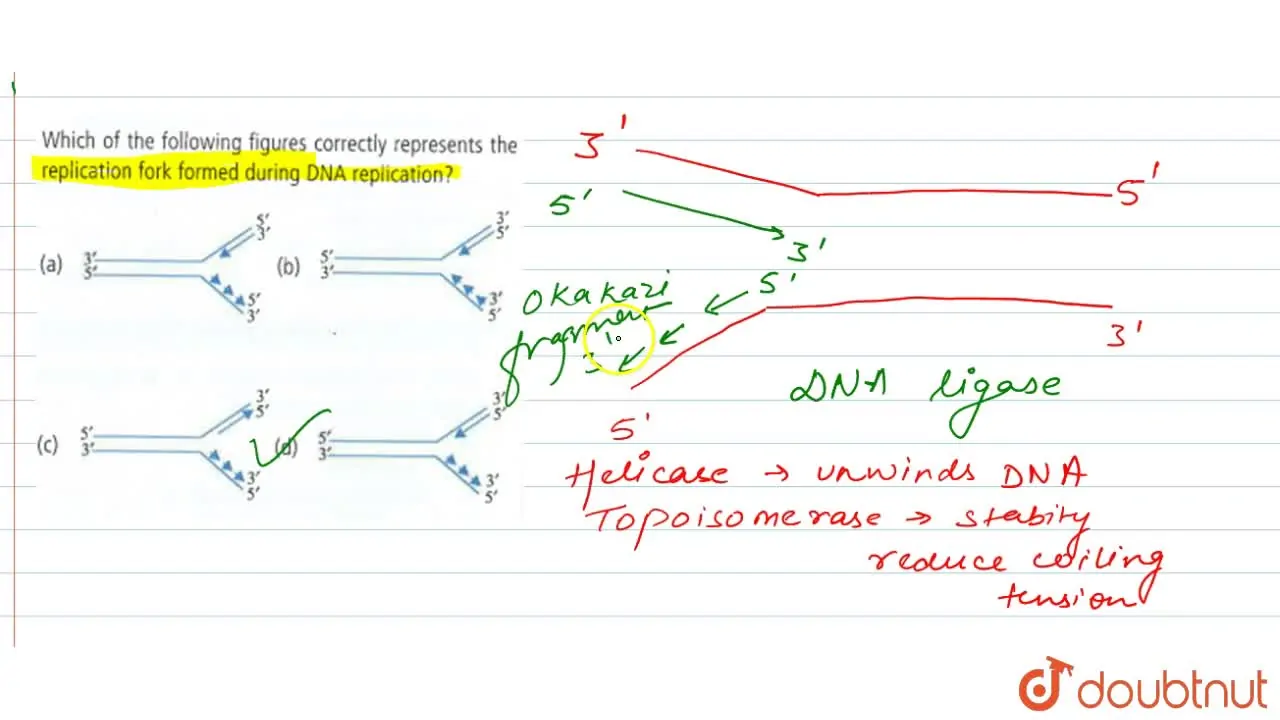 Which of the following figures correctly represents the
replication fork formed during DNA replication?
(a) 3' 5' 5' 3' 5' 3'
(b) 5' 3' 3' 5' 3' 5'
(c) 5' 3' 3' 5' 3' 5'
(d) 5' 3' 3' 5' 3' 5'
3'
5'
5'
3'
5'
Okakazi
fragment
3'
5'
3'
DNA ligase
Helicase → unwinds DNA
Topoisomerase → stabity
reduce coiling
tension
doubtnut